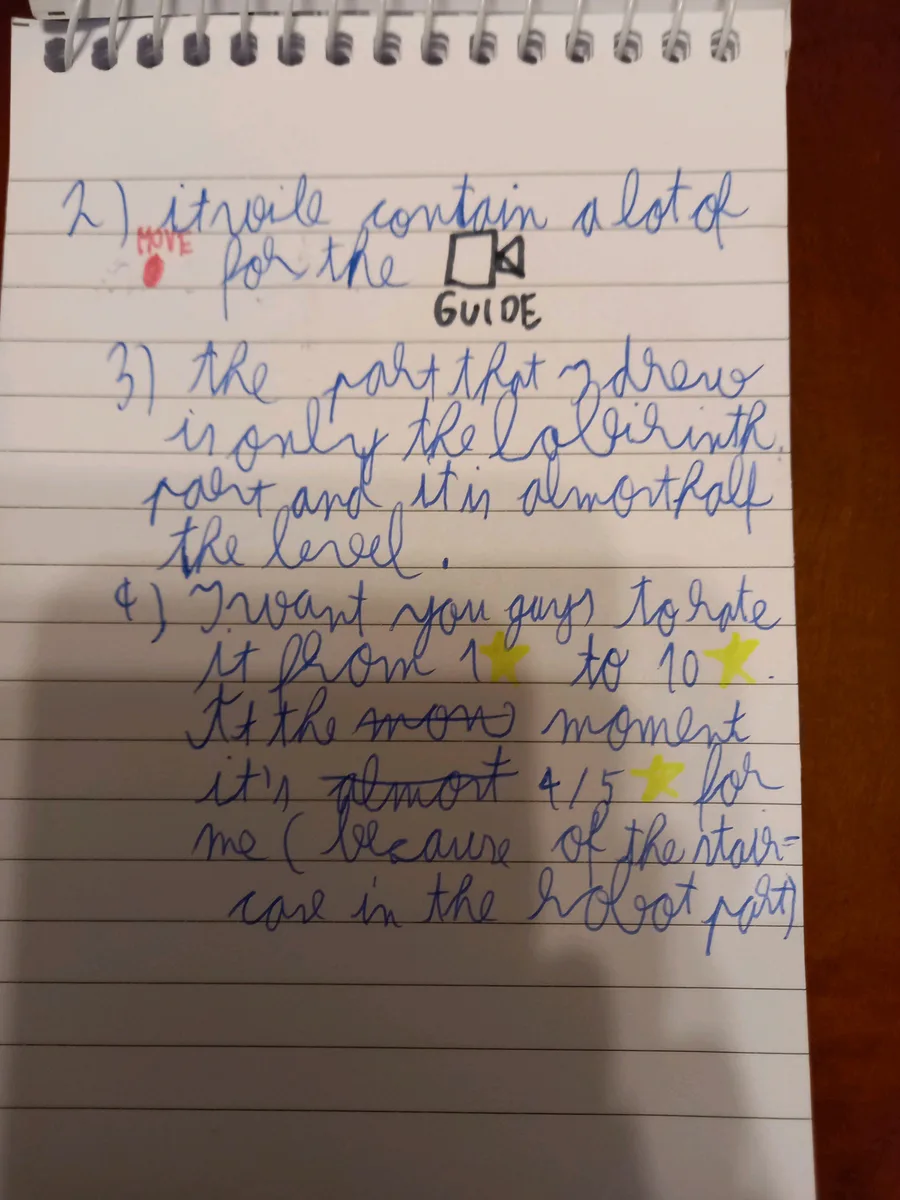 2) it wile contain a lot of
MOVE for the
GUIDE
3) the part that I drew
is only the labirinth
part and it is almost half
the level.
4) I want you guys to rate
it from 1 to 10.
At the mon moment
it's almost 4/5 for
me (because of the stair=
case in the robot part)